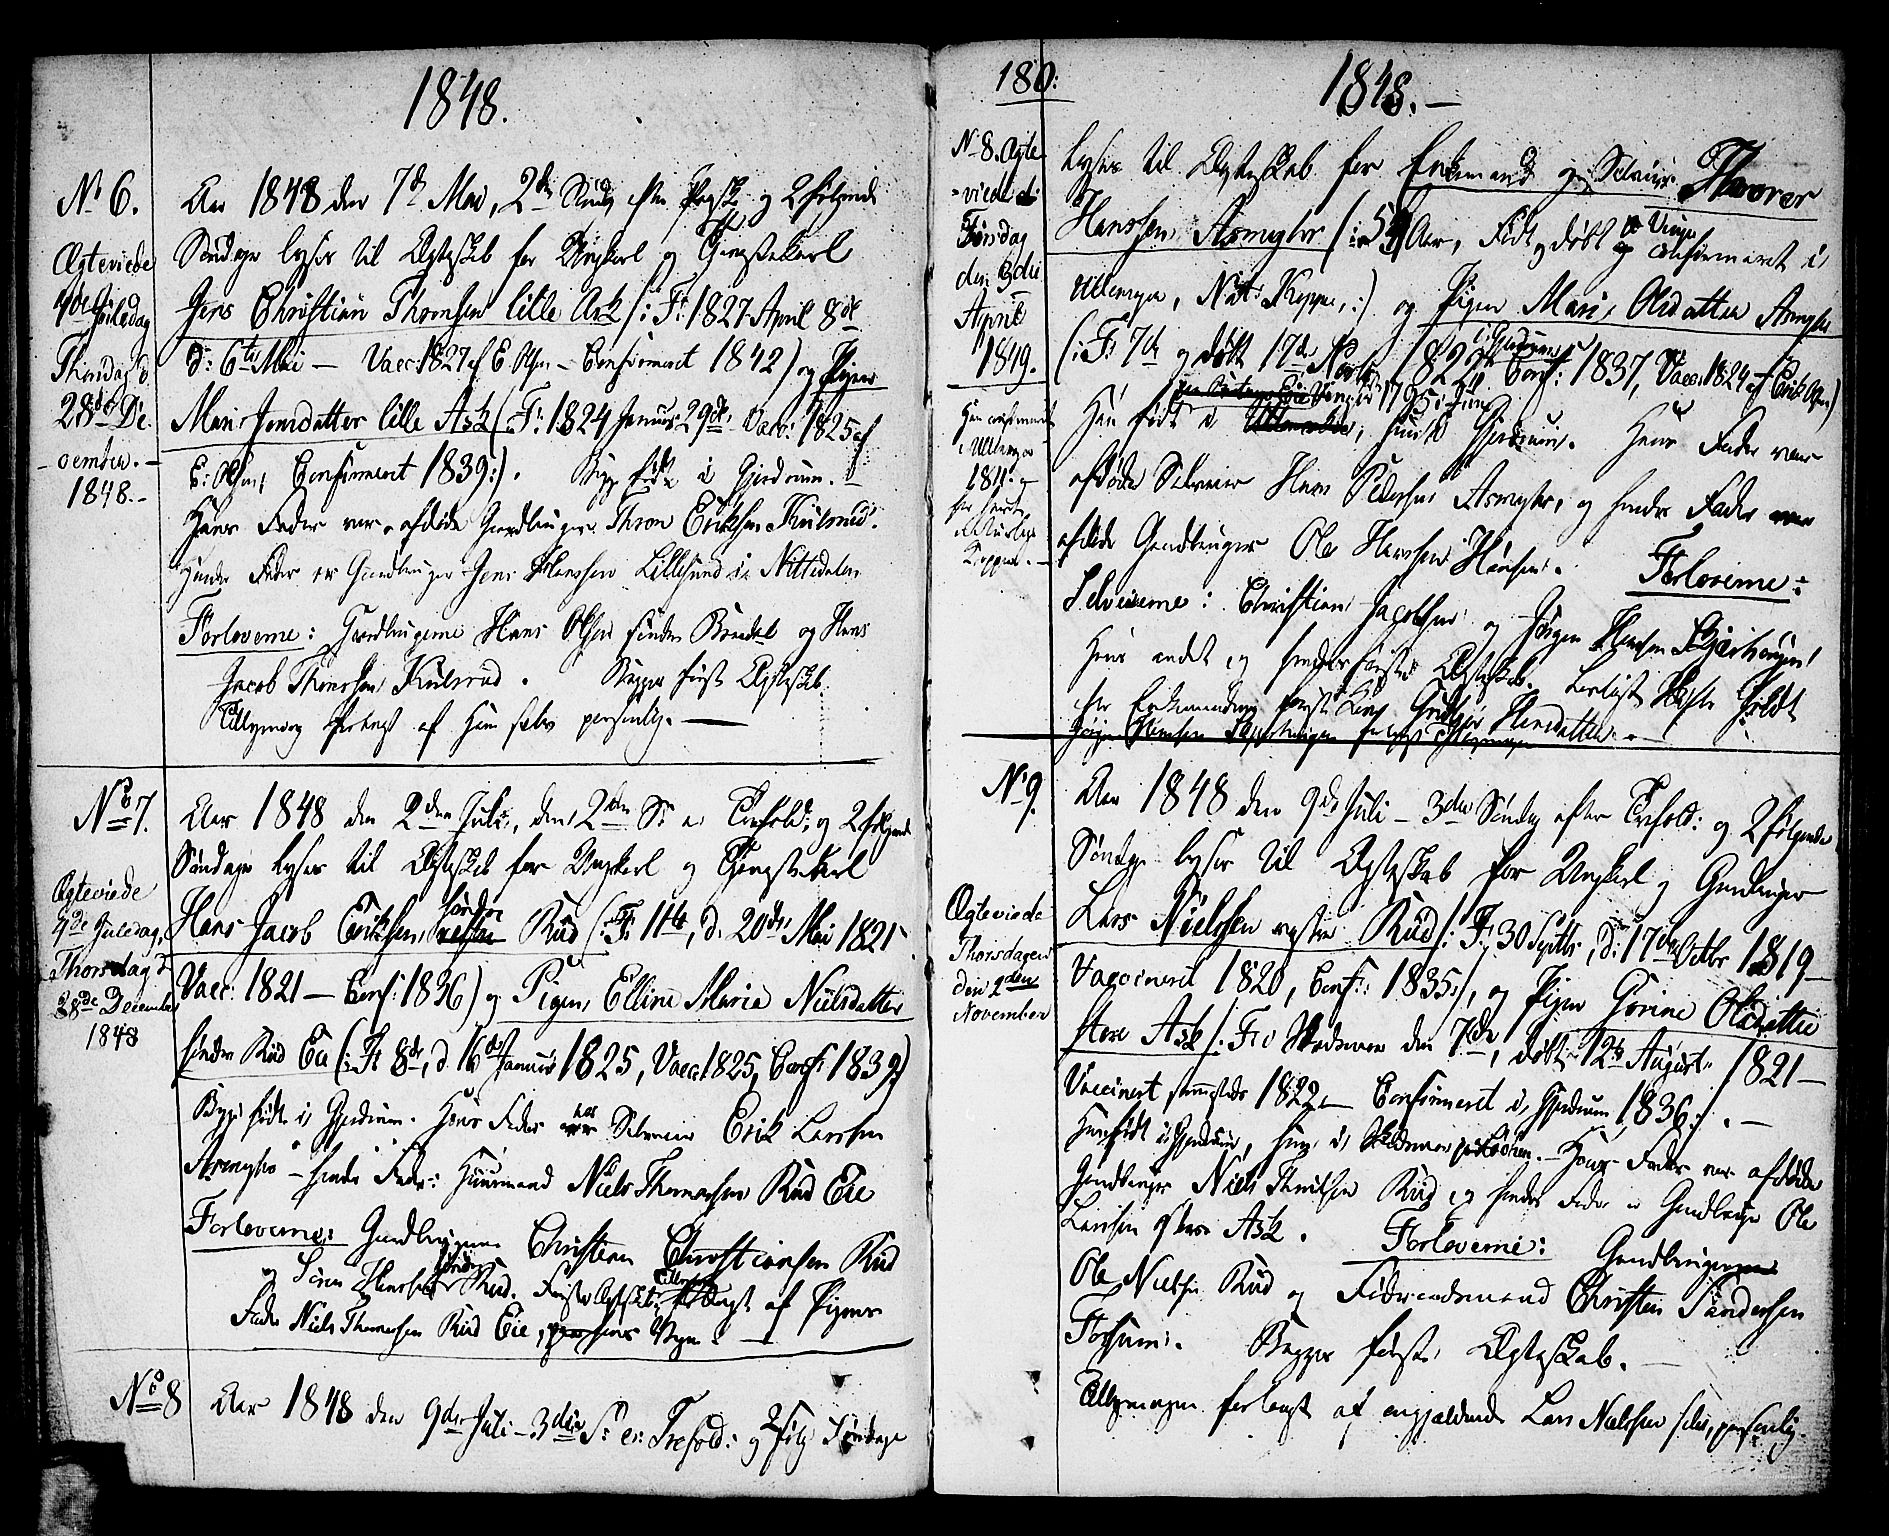 1848.
No 6.
Ægteviede
4de Juledag
Thorsdag d.
28de De
cember. -
1848. -
Aar 1848 den 7de Mai, 2den Søndg efter Paaske og 2 følgende
Søndage lyses til Ægteskab for Ungkarl og Tjenestekarl
Jens Christian Thronsen lille Ask (: F: 1827 April 8de
d: 6te Mai - Vacc: 1827 af E. Olsen - Confirmeret 1842) og Pigen
Mari Jensdatter lille Ask (F: 1824 Januar 29de, Vacc: 1825 af
E: Olsen, Confirmeret 1839:). Begge fødte i Gjerdrum. -
Hans Fader var afdøde Gaardbruger Thron Eriksen Kulsrud.
Hendes Fader er Gaardbruger Jens Hanssen Lillesund i Nittedalen
Forloverne: Gaardbrugerne Hans Olsen søndre Brædal og Hans
Jacob Thronsen Kulsrud. Begges første Ægteskab.
Tillysning forlangt af Ham selv personlig. -
No 7.
Ægteviede
4de Juledag,
Thorsdag d
28de December
1848
Aar 1848 den 2den Juli, den 2den S: e: Trefold: og 2 følgende
Søndage lyses til Ægteskab for Ungkarl og Tjenestekarl
Hans Jacob Eriksen søndre Rud (: F: 11te, d. 20de Mai 1821
Vacc: 1821 - Conf: 1836) og Pigen Elline Marie Nielsdatter
søndre Rud Eie (: F: 8de, d. 16de Januar 1825, Vacc: 1825, Conf: 1839:)
Begge fødte i Gjerdrum. Hans Fader var Selveier Erik Larsen
Asmyhr - hendes Fader: Huusmand Niels Thomassen Rud Eie
Forloverne: Gaardbrugerne Christian Christiansen Rud
og Søren Hansen søndre Rud. Første Ægteskab. Tillysning forlangt af Pigens
Fader Niels Thomassen Rud Eie,
No 8 Aar 1848 den 9de Juli - 3die S: e: Trefold: og 2 følg Søndage
180:
1848. -
N 8. Ægte
=viede d:
Tirsdag
den 3die
April
1849.
Han confirmeret
i Ullensager
1811. -
har havt
naturlige
Kopper. -
lyses til Ægteskab for Enkemand og Selveier Thorer
Hanssen Asmyhr (: 54 Aar, Født og døbt i Vinger og Confirmeret i
Ullensager, Nat: Kopper, :) og Pigen Mari Olsdatter Asmyhr
(: F: 7de og døbt 17de Novbr 1822 i Gjerdrum Conf: 1837, Vacc: 1824 af Erik Olsen)
Han født i Vinger, hun i Gjerdrum. Hans Fader var
afdøde Selveier Hans Pedersen Asmyhr, og hendes Fader var
afdøde Gaardbruger Ole Hanssen Hønsen. Forloverne:
Selveierne: Christian Jacobsen og Jørgen Hansen Kjærhougen
Hans andet og hendes første Ægteskab. Lovligt Skifte holdt
for Enkemanden første Kone Hansdatter. -
No 9.
Ægteviede
Thorsdagen
den 2den
November
Aar 1848 den 9de Juli - 3die Søndag efter Trefold: og 2 følgende
Søndge lyses til Ægteskab for Ungkarl og Gaardbruger
Lars Nielssen vestre Rud (: F: 30 Septbr, D: 17de Octbr 1819 -
Vaccineret 1820, Conf: 1835:), og Pigen Gorine Olsdatter
store Ask (: F: i Skedsmoe den 7de, døbt 12te August 1821 -
Vaccineret sammesteds 1822 - Confirmeret i Gjerdrum 1836:). -
Han født i Gjerdrum, hun i Skedsmoe - Hans Fader var afdøde
Gaardbruger Niels Thoresen Rud og hendes Fader er Gaardbruger Ole
Larssen store Ask. Forloverne: Gaardbrugerne
Ole Nielsen Rud og Føderaadsmand Christen Sanderssen
Fossum. Begges første Ægteskab. -
Tillysningen forlangt af angjældende Lars Nielssen selv, personlig.